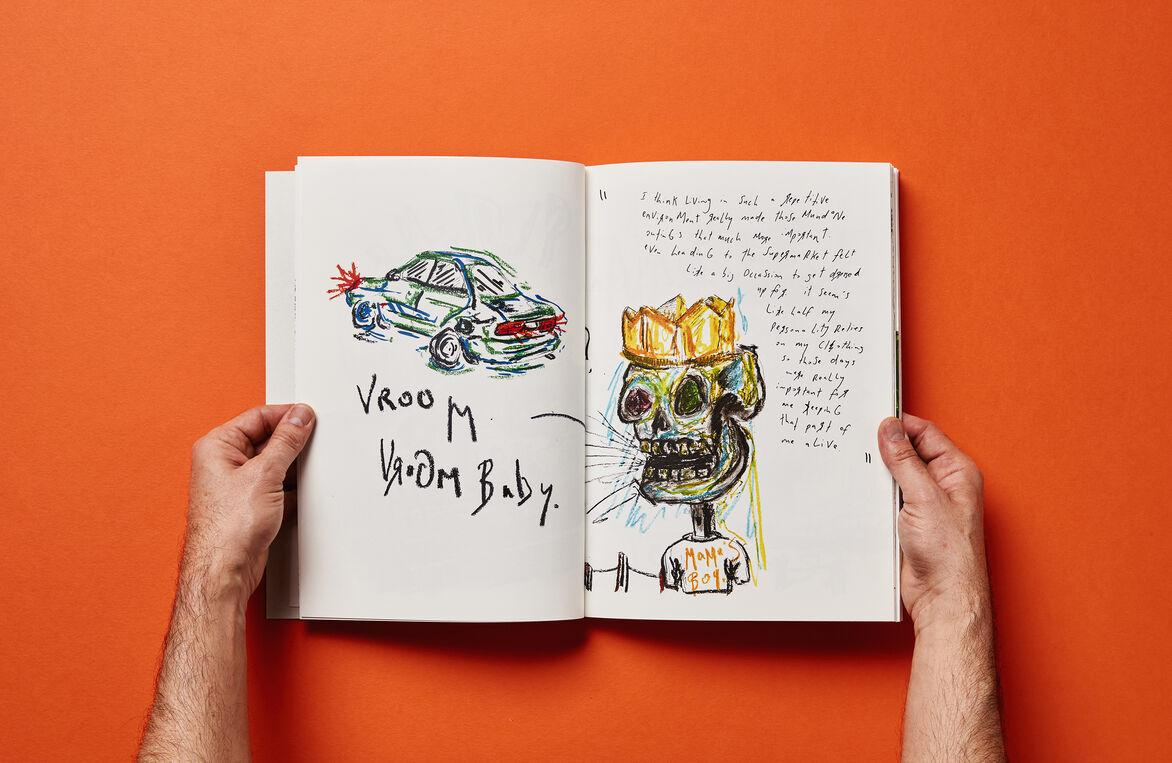 VROOM
VROOM Baby.
"
I think Living in such a Repetitive
enviRonMent Really made those MundaNe
outinGs that much MoRe imPoRtanT.
even HeadinG to the SupeRmaRKet felt
Like a big Occassion to get dRessed
up foR. it Seem's
Like half my
PeRsonaLity Relies
on my Clothing
so those days
weRe Really
impoRtant foR
me KeepinG
that paRt of
me aLive.
"
MaMa'S
Boy.